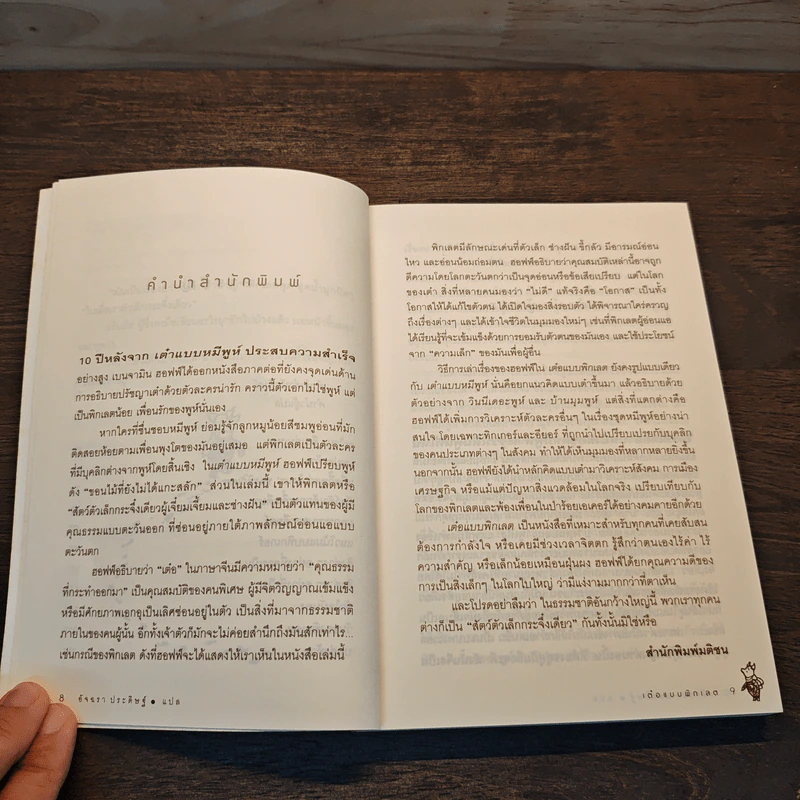 คำนำสำนักพิมพ์
10 ปีหลังจาก เต๋าแบบหมีพูห์ ประสบความสำเร็จ
อย่างสูง เบนจามิน ฮอฟฟ์ได้ออกหนังสือภาคต่อที่ยังคงจุดเด่นด้าน
การอธิบายปรัชญาเต๋าด้วยตัวละครน่ารัก คราวนี้ตัวเอกไม่ใช่พูห์ แต่
เป็นพิกเลตน้อย เพื่อนรักของพูห์นั่นเอง
หากใครที่ชื่นชอบหมีพูห์ ย่อมรู้จักลูกหมูน้อยสีชมพูอ่อนที่มัก
ติดสอยห้อยตามเพื่อนพุงโตของมันอยู่เสมอ แต่พิกเลตเป็นตัวละคร
ที่มีบุคลิกต่างจากพูห์โดยสิ้นเชิง ในเต๋าแบบหมีพูห์ ฮอฟฟ์เปรียบพูห์
ดัง “ขอนไม้ที่ยังไม่ได้แกะสลัก” ส่วนในเล่มนี้ เขาให้พิกเลตหรือ
“สัตว์ตัวเล็กกระจิ๋งเดียวผู้เจี๋ยมเจี้ยมและช่างฝัน” เป็นตัวแทนของผู้มี
คุณธรรมแบบตะวันออก ที่ซ่อนอยู่ภายใต้ภาพลักษณ์อ่อนแอแบบ
ตะวันตก
ฮอฟฟ์อธิบายว่า “เต๋อ” ในภาษาจีนมีความหมายว่า “คุณธรรม
ที่กระทำออกมา” เป็นคุณสมบัติของคนพิเศษ ผู้มีจิตวิญญาณเข้มแข็ง
หรือมีศักยภาพเอกอุเป็นเลิศซ่อนอยู่ในตัว เป็นสิ่งที่มาจากธรรมชาติ
ภายในของคนผู้นั้น อีกทั้งเจ้าตัวก็มักจะไม่ค่อยสำนึกถึงมันสักเท่าไร...
เช่นกรณีของพิกเลต ดังที่ฮอฟฟ์จะได้แสดงให้เราเห็นในหนังสือเล่มนี้
8 อัจฉรา ประดิษฐ์ • แปล
พิกเลตมีลักษณะเด่นที่ตัวเล็ก ช่างฝัน ขี้กลัว มีอารมณ์อ่อน
ไหว และอ่อนน้อมถ่อมตน ฮอฟฟ์อธิบายว่าคุณสมบัติเหล่านี้อาจถูก
ตีความโดยโลกตะวันตกว่าเป็นจุดอ่อนหรือข้อเสียเปรียบ แต่ในโลก
ของเต๋า สิ่งที่หลายคนมองว่า “ไม่ดี” แท้จริงคือ “โอกาส” เป็นทั้ง
โอกาสให้ได้แก้ไขตัวตน ได้เปิดใจมองสิ่งรอบตัว ได้พิจารณาใคร่ครวญ
ถึงเรื่องต่างๆ และได้เข้าใจชีวิตในมุมมองใหม่ๆ เช่นที่พิกเลตผู้อ่อนแอ
ได้เรียนรู้ที่จะเข้มแข็งด้วยการยอมรับตัวตนของมันเอง และใช้ประโยชน์
จาก “ความเล็ก” ของมันเพื่อผู้อื่น
วิธีการเล่าเรื่องของฮอฟฟ์ใน เต๋อแบบพิกเลต ยังคงรูปแบบเดียว
กับ เต๋าแบบหมีพูห์ นั่นคือยกแนวคิดแบบเต๋าขึ้นมา แล้วอธิบายด้วย
ตัวอย่างจาก วินนี่เดอะพูห์ และ บ้านมุมพูห์ แต่สิ่งที่แตกต่างคือ
ฮอฟฟ์ได้เพิ่มการวิเคราะห์ตัวละครอื่นๆ ในเรื่องชุดหมีพูห์อย่างน่า
สนใจ โดยเฉพาะทิกเกอร์และอียอร์ ที่ถูกนำไปเปรียบเปรยกับบุคลิก
ของคนประเภทต่างๆ ในสังคม ทำให้ได้เห็นมุมมองที่หลากหลายยิ่งขึ้น
นอกจากนั้น ฮอฟฟ์ยังได้นำหลักคิดแบบเต๋ามาวิเคราะห์สังคม การเมือง
เศรษฐกิจ หรือแม้แต่ปัญหาสิ่งแวดล้อมในโลกจริง เปรียบเทียบกับ
โลกของพิกเลตและพ้องเพื่อนในป่าร้อยเอเคอร์ได้อย่างคมคายอีกด้วย
เต๋อแบบพิกเลต เป็นหนังสือที่เหมาะสำหรับทุกคนที่เคยสับสน
ต้องการกำลังใจ หรือเคยมีช่วงเวลาจิตตก รู้สึกว่าตนเองไร้ค่า ไร้
ความสำคัญ หรือเล็กน้อยเหมือนฝุ่นผง ฮอฟฟ์ได้ยกคุณความดีของ
การเป็นสิ่งเล็กๆ ในโลกใบใหญ่ ว่ามีแง่งามมากกว่าที่ตาเห็น
และโปรดอย่าลืมว่า ในธรรมชาติอันกว้างใหญ่นี้ พวกเราทุกคน
ต่างก็เป็น “สัตว์ตัวเล็กกระจิ๋งเดียว” กันทั้งนั้นมิใช่หรือ
สำนักพิมพ์มติชน
เต๋อแบบพิกเลต 9